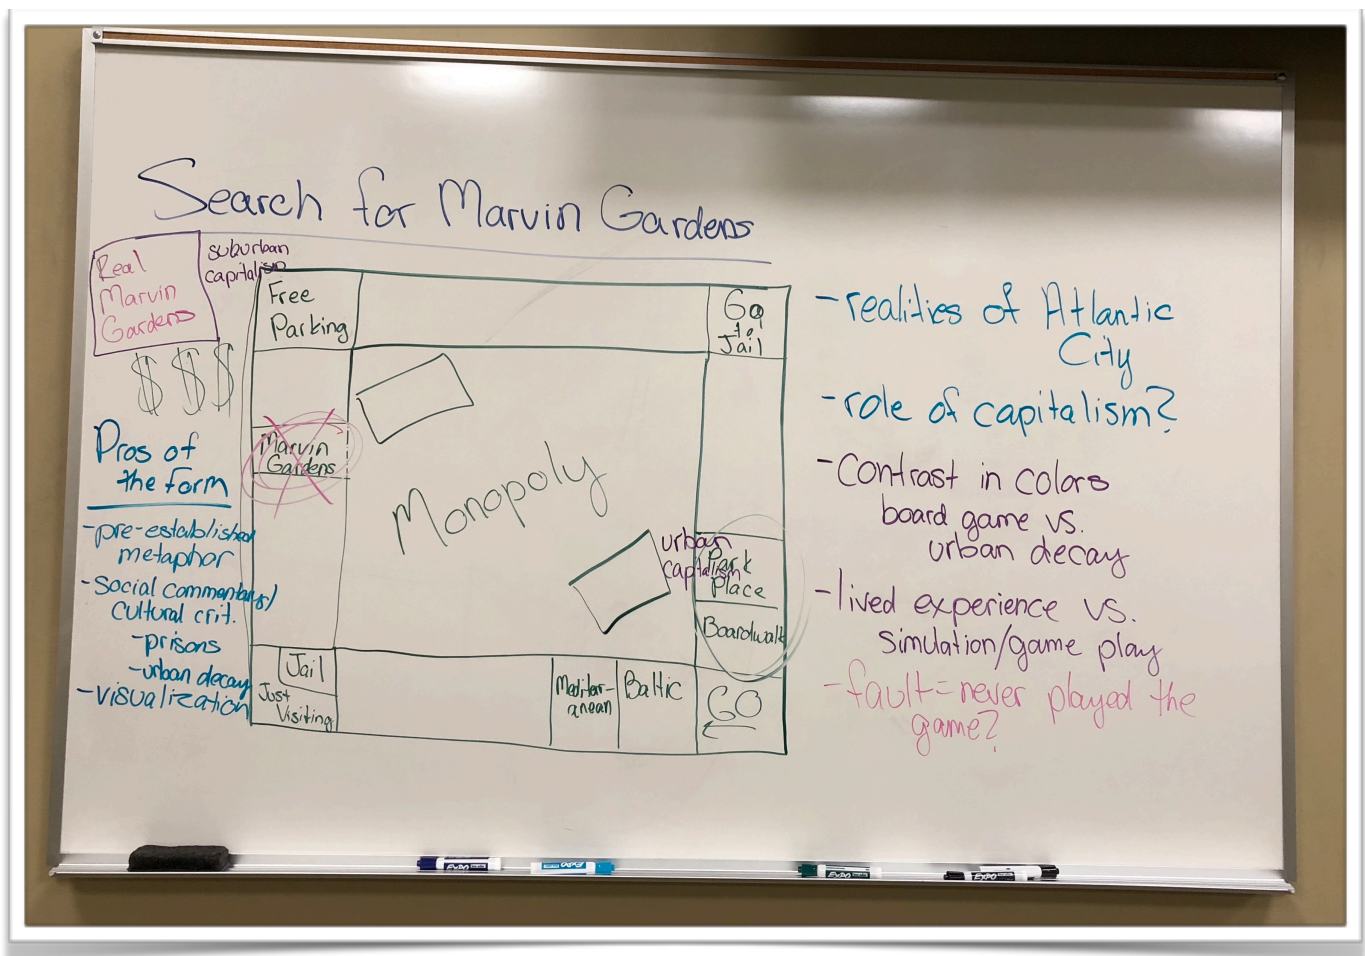 Search for Marvin Gardens
Real
Marvin
Gardens
suburban
capitalism
$ $ $
Pros of
the form
-pre-established
metaphor
-Social commentary/
cultural crit.
-prisons
-urban decay
-visualization
Free
Parking
Go
to
Jail
Marvin
Gardens
Monopoly
urban
capitalism
Park
Place
Boardwalk
Jail
Just
Visiting
Mediter-
anean
Baltic
GO
-realities of Atlantic
City
-role of capitalism?
-contrast in colors
board game vs.
urban decay
-lived experience vs.
simulation/game play
-fault=never played the
game?
EXPO
EXPO
EXPO
EXPO